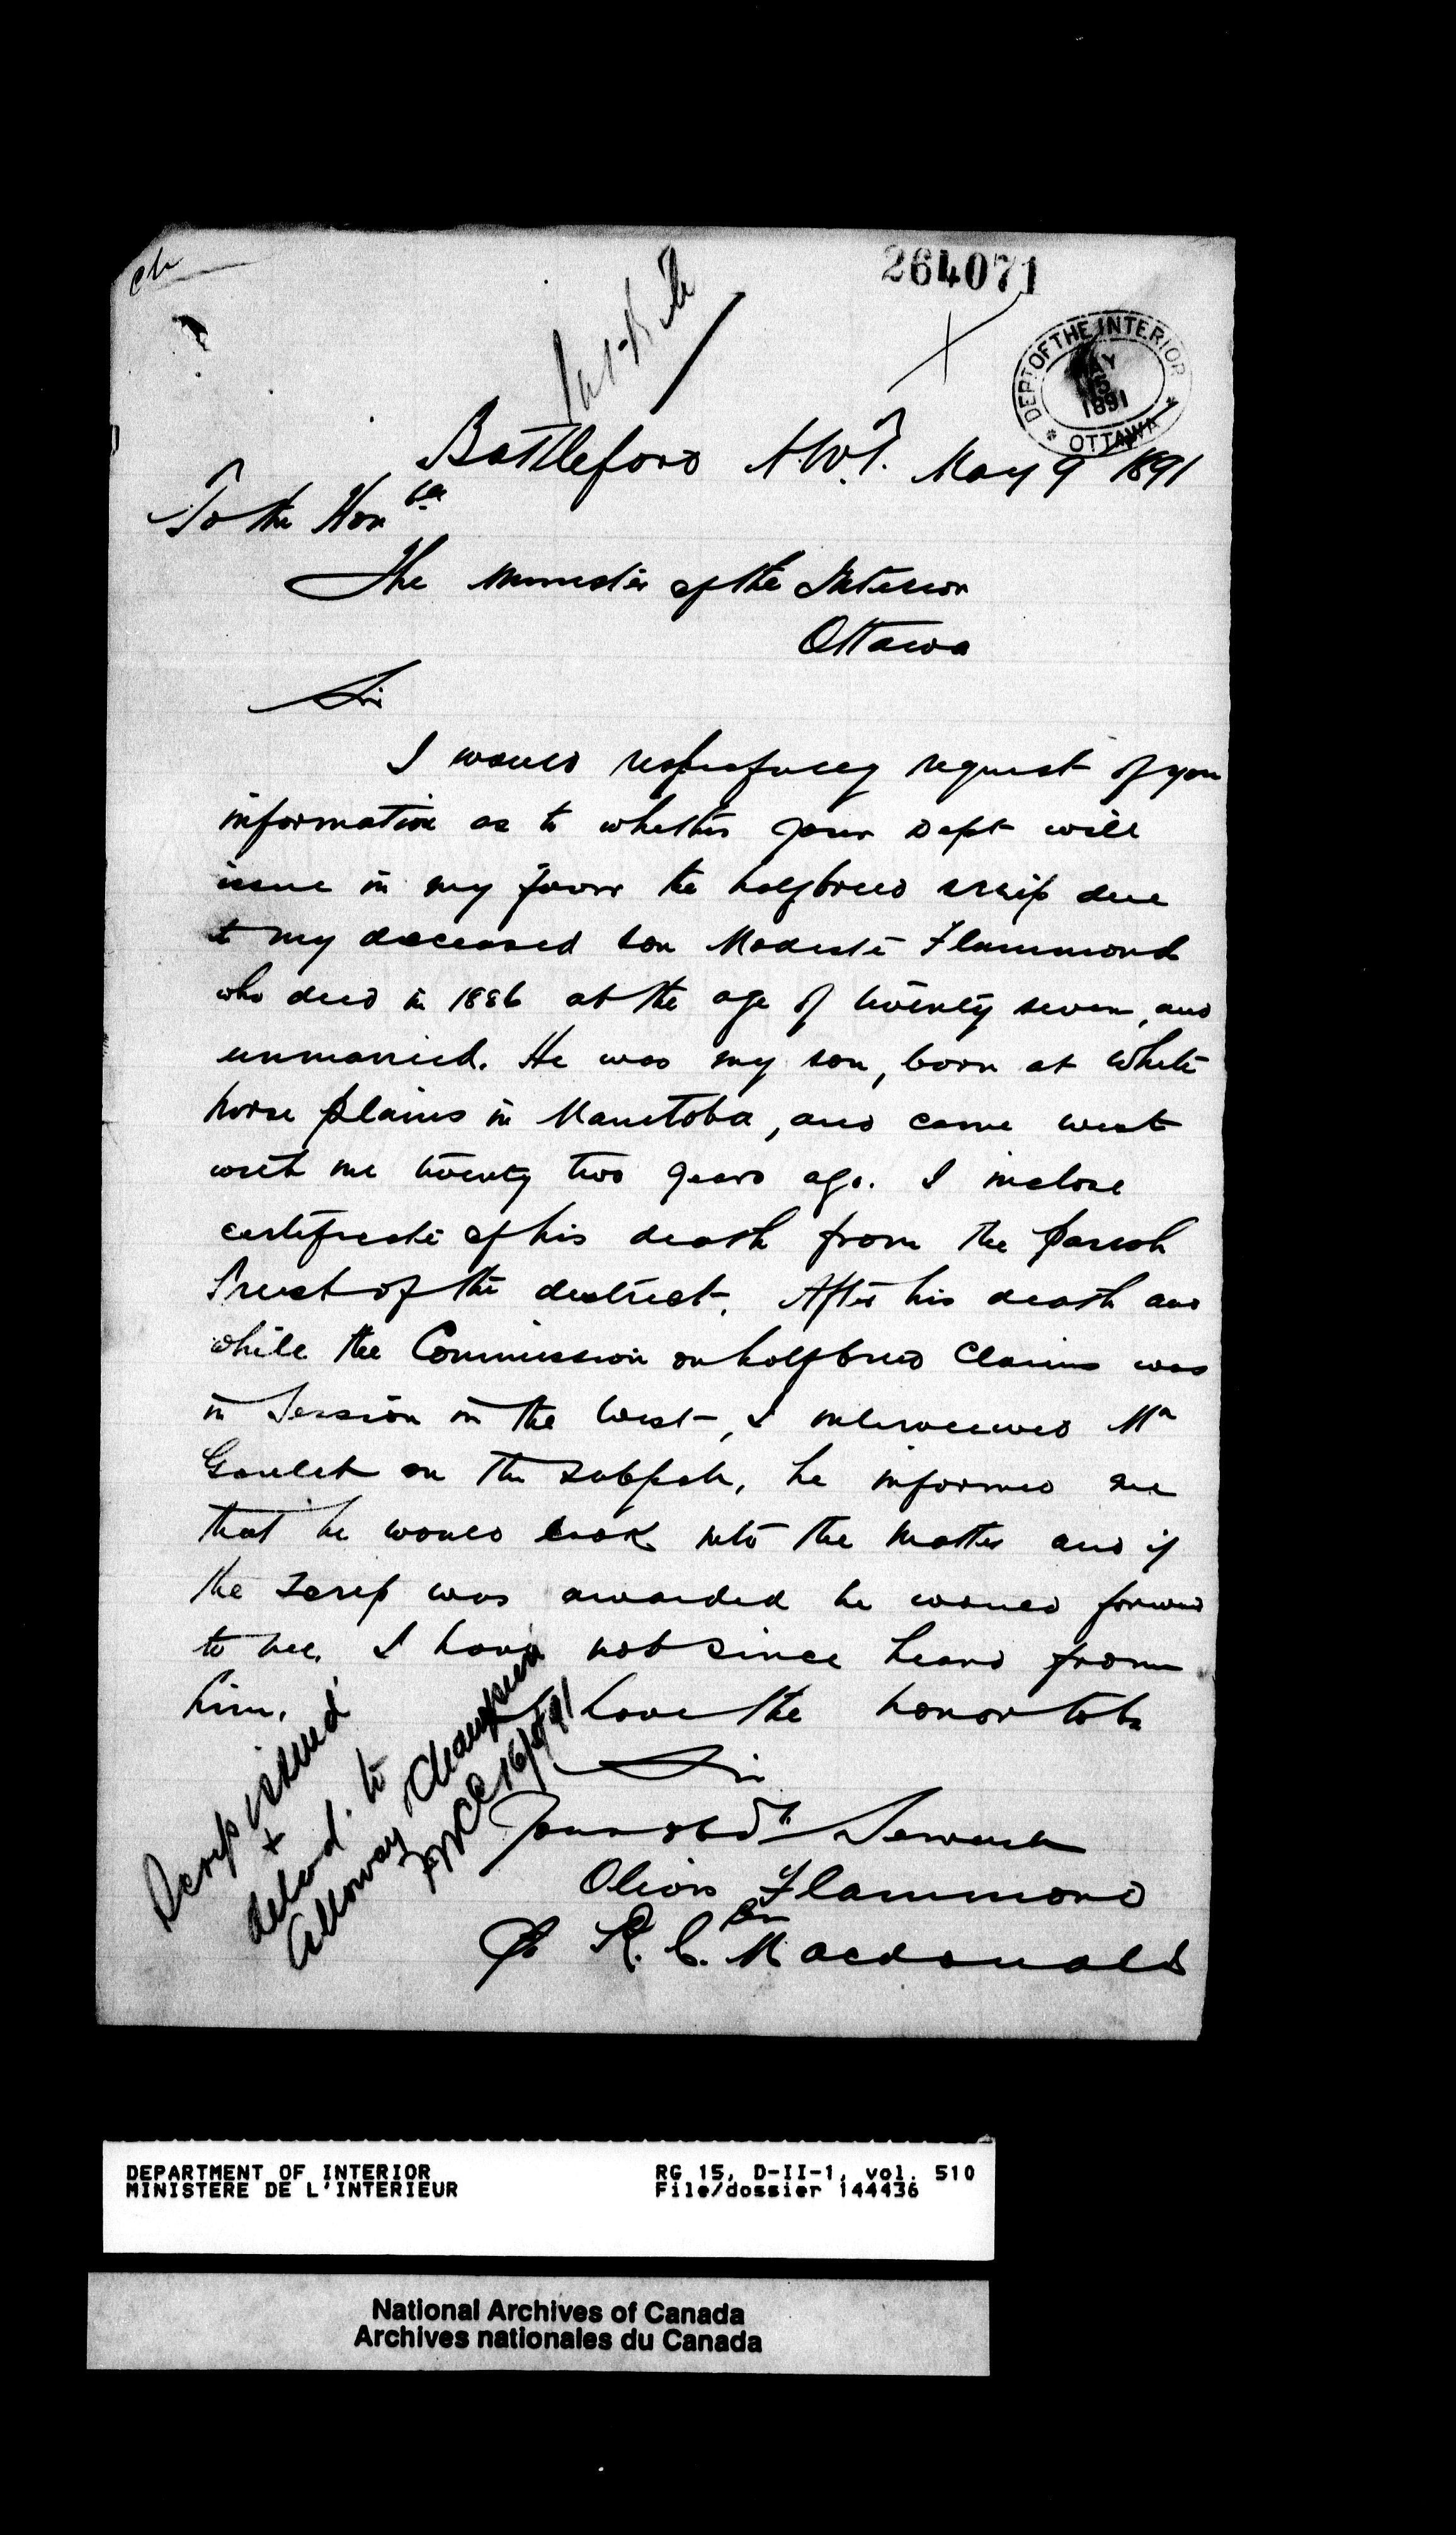 264071
DEPT. OF THE INTERIOR
MAY
15
1891
OTTAWA
Battleford N.W.T. May 9 1891
To the Honble
The Minister of the Interior
Ottawa
Sir
I would respectfully request of you
information as to whether your Dept will
issue in my favor the halfbreed scrip due
to my deceased son Modeste Flammond
who died in 1886 at the age of twenty seven, and
unmarried. He was my son, born at White
horse plains in Manitoba, and came west
with me twenty two years ago. I inclose
certificate of his death from the parish
Priest of the district. After his death and
while the Commission on halfbreed Claims was
in Session in the West, I interviewed Mr
Goulet on the subject, he informed me
that he would look into the matter and if
the Scrip was awarded he would forward
to me. I have not since heard from
him. I have the honor to be
Sir
Your obdt Servant
Olivis Flammond
Per
R. C. Macdonald
Scrip issued
+
deld. to
Alloway & Champion
16/5/91
DEPARTMENT OF INTERIOR
MINISTERE DE L'INTERIEUR
RG 15, D-II-1, vol. 510
File/dossier 144436
National Archives of Canada
Archives nationales du Canada